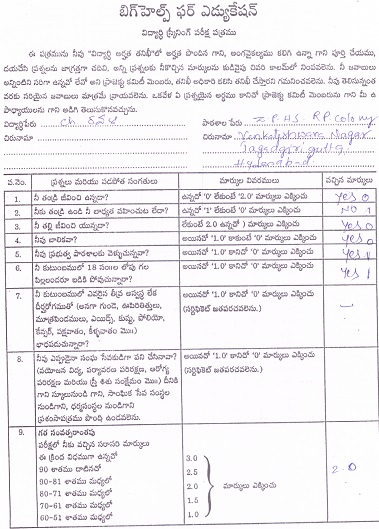 బిగ్‌హెల్ప్ ఫర్ ఎడ్యుకేషన్
విద్యార్థి స్క్రీనింగ్ పరీక్ష పత్రము
ఈ పత్రమును నీవు "విద్యార్థి అర్హత తనిఖీ"లో అర్హత పొందిన గాని, అంగవైకల్యము కలిగి ఉన్నా గాని పూర్తి చేయము,
దయచేసి ప్రశ్నలను జాగ్రత్తగా చదివి, అన్ని ప్రశ్నలకు నీకొచ్చిన మార్కులను కుడివైపు చివరి కాలమ్‌లో నింపవలెను. నీ జవాబులు
అన్నింటిని సరిగా ఉన్నవో లేదో అని ప్రాజెక్టు కమిటీ మెంబరు, తనిఖీ అధికారి కలిసి తనిఖీ చేస్తారని గమనించవలెను. నీవు తెలిసినంత
వరకు సరియైన జవాబులు మాత్రమే వ్రాయవలెను. ఒకవేళ ఏ ప్రశ్నయైన అర్థము కానిచో ప్రాజెక్టు కమిటీ మెంబరును గాని మీ ఉ
పాధ్యాయులను గాని అడిగి తెలుసుకొనవచ్చును.
విద్యార్థిపేరు ch. పాఠశాల పేరు Z P HS. RP Colony
చిరునామా చిరునామా Venkateshwara Nagar
Jagadgiri gutta
Hyderabad
వ.నెం. ప్రశ్నలు మరియు పడపోత సంగతులు మార్కుల వివరములు వచ్చిన మార్కులు
1. నీ తండ్రి జీవించి ఉన్నాడా? ఉన్నచో '0' లేకుంటే '2.0' మార్కులు ఎక్కించు Yes 0
2. నీకు తండ్రి ఉండి నీ బాధ్యత వహించుట లేదా? ఉన్నచో '1' లేకుంటే '0' మార్కులు ఎక్కించు No 1
3. నీ తల్లి జీవించి యున్నదా? లేకుంటే 2.0 ఉన్నచో ) మార్కులు ఎక్కించు Yes 0
4. నీవు బాలికవా? అయినచో '1.0' కాకుంటే '0' మార్కులు ఎక్కించు Yes
5. నీవు ప్రభుత్వ పాఠశాలకు వెళ్ళుచున్నావా? అయినచో '1.0' కానిచో '0' మార్కులు ఎక్కించు Yes
6. నీ కుటుంబములో 18 సం॥ల లోపు గల
పిల్లలందరూ బడికి పోవుచున్నారా? అయినచో '1.0' కానిచో '0' మార్కులు ఎక్కించు Yes 1
7. నీ కుటుంబములో ఎవరైన తీవ్ర అస్వస్థత లేక
దీర్ఘరోగముతో (అనగా గుండె, ఊపిరితిత్తులు,
మూత్రపిండములు, ఎయిడ్స్, కుష్ఠు, పోలియో,
కేన్సర్, పక్షవాతం, కీళ్ళవాతం మొ॥)
బాధపడుచున్నారా? అయినచో '1.0' కానిచో '0' మార్కులు ఎక్కించు
(సర్టిఫికెట్ జతపరచవలెను.)
8. నీవు ఎప్పుడైనా సంఘ సేవకుడిగా పని చేసినావా?
(వయోజన విద్య, పర్యావరణ పరిరక్షణ, ఆరోగ్య
పరిరక్షణ మరియు స్త్రీ శిశు సంక్షేమం మొ॥) దీనికి
గాని స్కూలునుండి గాని, సాంఘిక సేవ సంస్థల
నుండిగాని, ధర్మసంస్థల నుండిగాని
ప్రశంసాపత్రము పొంది ఉండవలెను. అయినచో '1.0' కానిచో '0' మార్కులు ఎక్కించు
(సర్టిఫికెట్ జతపరచవలెను.)
9. గత సంవత్సరాంతపు
పరీక్షలో నీకు వచ్చిన సరాసరి మార్కులు
ఈ క్రింద విధముగా ఉన్నచో
90 శాతము దాటినచో 3.0
90-81 శాతము మధ్యలో 2.5
80-71 శాతము మధ్యలో 2.0 మార్కులు ఎక్కించు 2.0
70-61 శాతము మధ్యలో 1.5
60-51 శాతము మధ్యలో 1.0